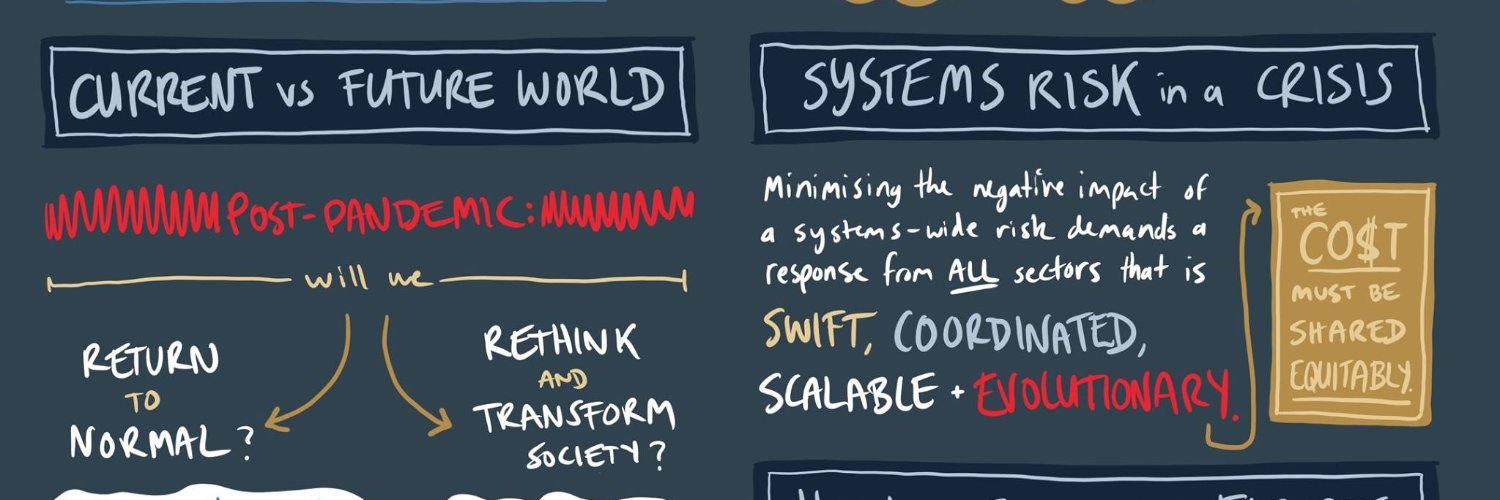 CURRENT vs FUTURE WORLD
POST-PANDEMIC:
will we
RETURN
TO
NORMAL?
RETHINK
AND
TRANSFORM
SOCIETY?
SYSTEMS RISK in a CRISIS
Minimising the negative impact of
a systems-wide risk demands a
response from ALL sectors that is
SWIFT, COORDINATED,
SCALABLE + EVOLUTIONARY.
THE
CO$T
MUST BE
SHARED
EQUITABLY.